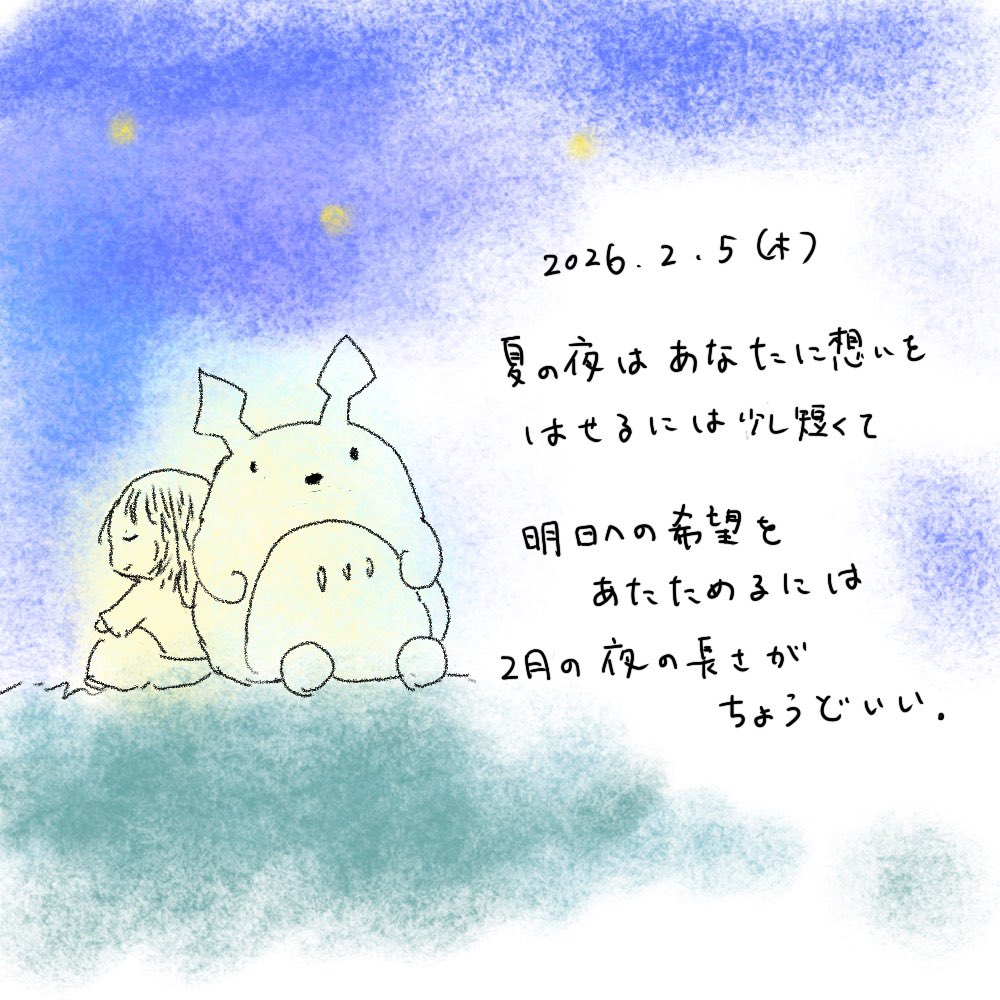 2026.2.5(木)
夏の夜はあなたに想いを
はせるには少し短くて
明日への希望を
あたためるには
2月の夜の長さが
ちょうどいい.